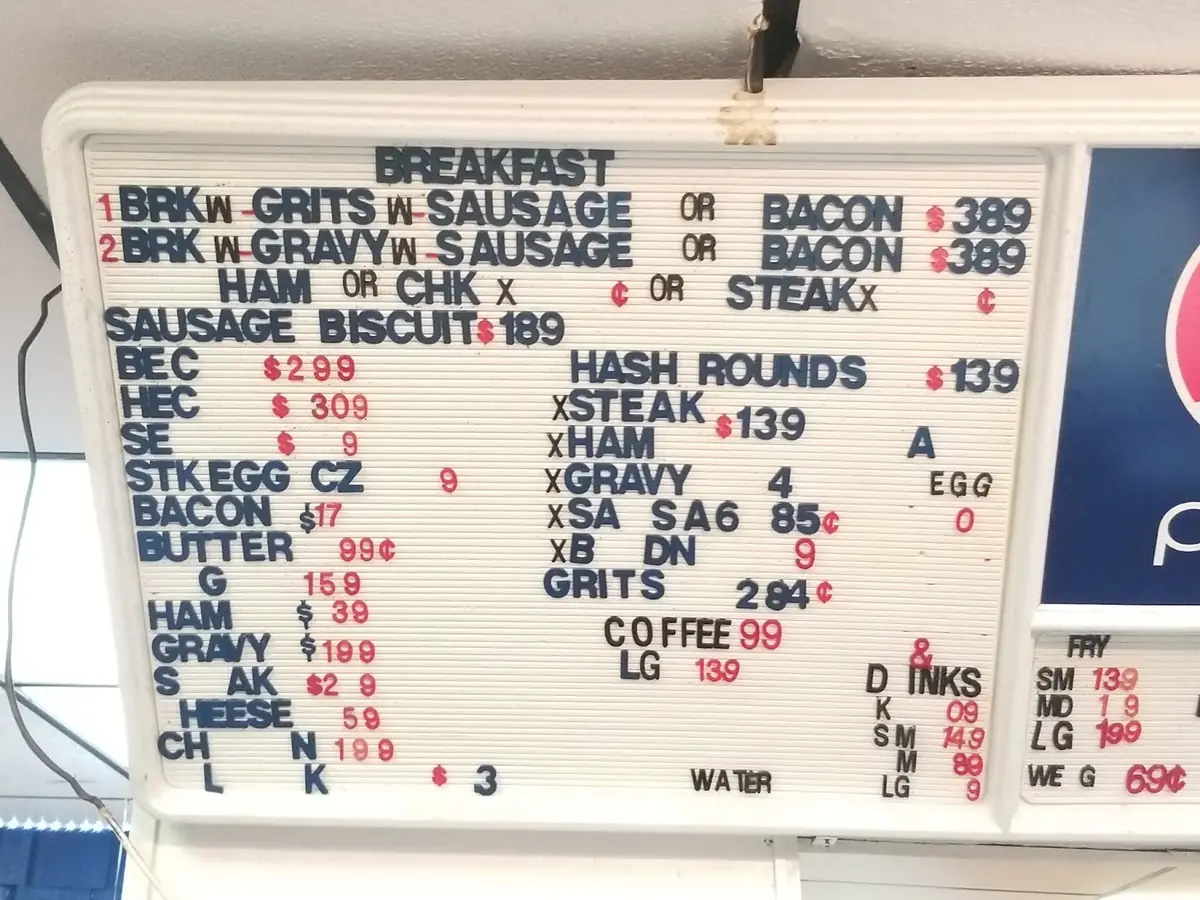 BREAKFAST
1 BRK W-GRITS W-SAUSAGE OR BACON $389
2 BRK W-GRAVY W-SAUSAGE OR BACON $389
HAM OR CHK X ¢ OR STEAK X ¢
SAUSAGE BISCUIT $189
BEC $299
HEC $ 309
SE $ 9
STK EGG CZ 9
BACON $17
BUTTER 99¢
G 159
HAM $ 39
GRAVY $199
S AK $2 9
HEESE 59
CH N 199
L K $ 3
HASH ROUNDS $139
X STEAK $139
X HAM A
X GRAVY 4 EGG
X SA SA6 85¢ 0
X B DN 9
GRITS 284¢
COFFEE 99
LG 139
WATER
&
D INKS
K 09
SM 149
M 89
LG 9
p
FRY
SM 139
MD 1 9
LG 199
WE G 69¢